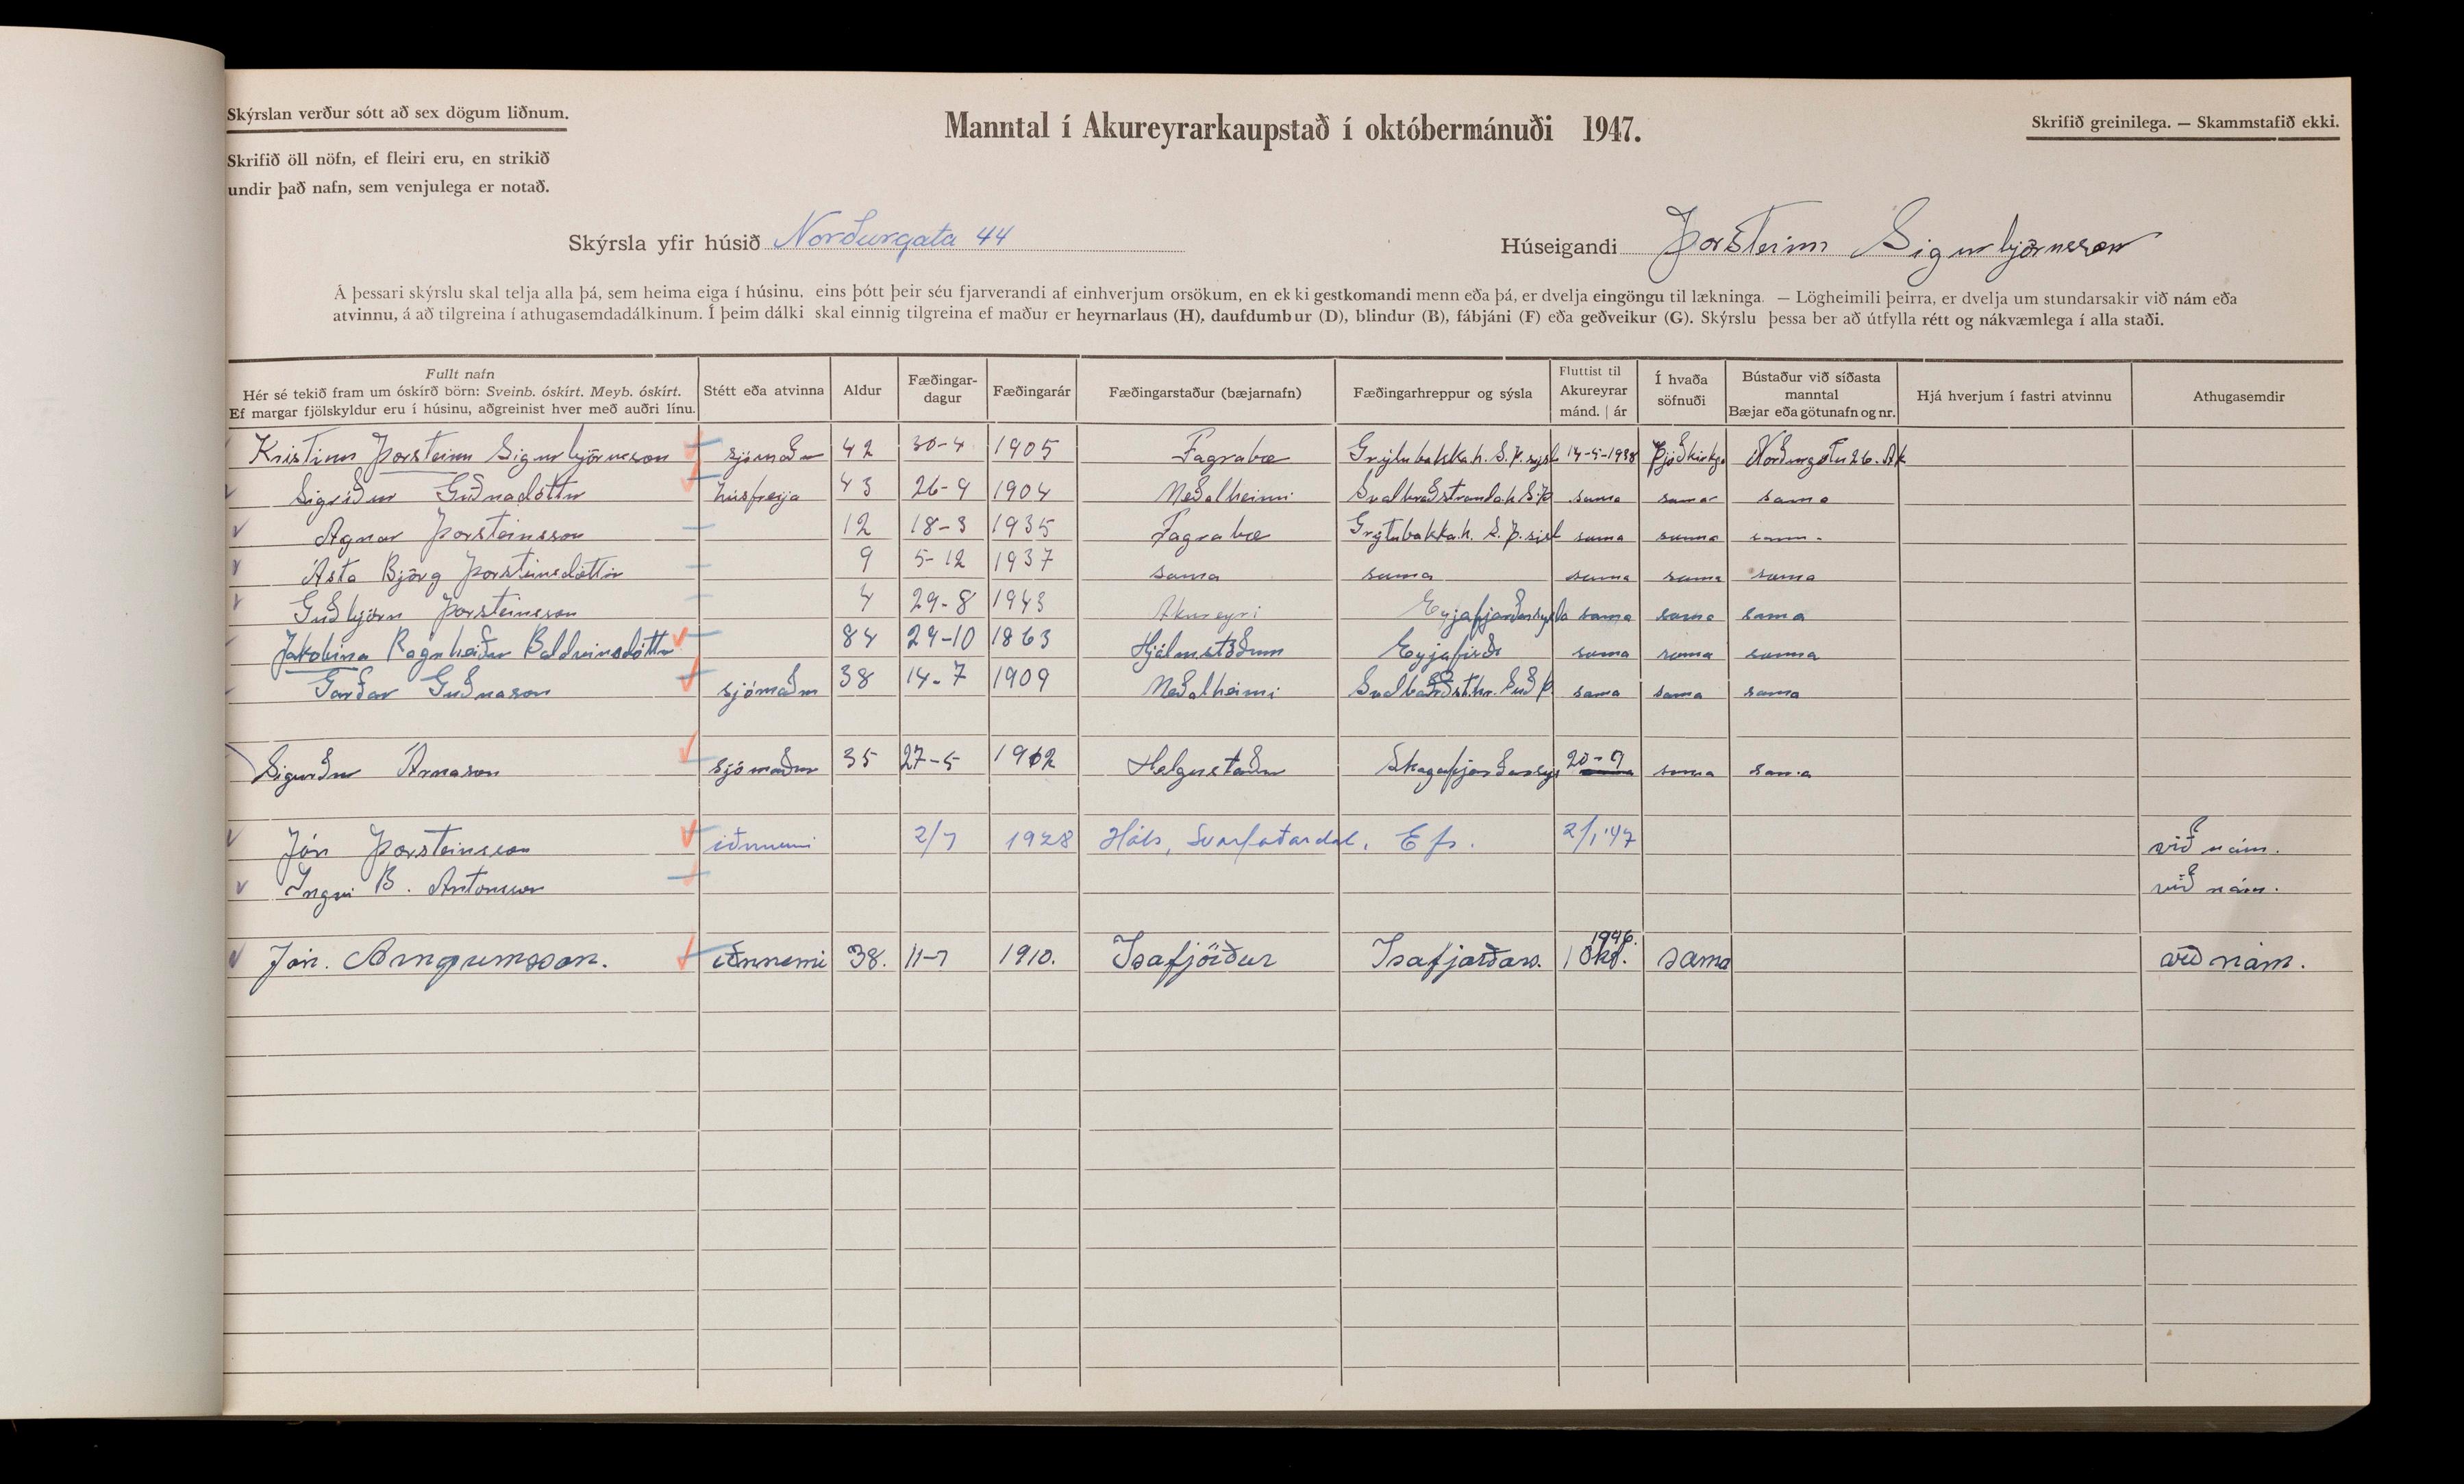 Skýrslan verður sótt að sex dögum liðnum.
Manntal í Akureyrarkaupstað í októbermánuði 1947.
Skrifið greinilega. — Skammstafið ekki.
Skrifið öll nöfn, ef fleiri eru, en strikið
undir það nafn, sem venjulega er notað.
Skýrsla yfir húsið Norðurgata 44
Húseigandi Þorsteinn Sigurbjörnsson
Á þessari skýrslu skal telja alla þá, sem heima eiga í húsinu, eins þótt þeir séu fjarverandi af einhverjum orsökum, en ekki gestkomandi menn eða þá, er dvelja eingöngu til lækninga. — Lögheimili þeirra, er dvelja um stundarsakir við nám eða
atvinnu, á að tilgreina í athugasemdadálkinum. Í þeim dálki skal einnig tilgreina ef maður er heyrnarlaus (H), daufdumbur (D), blindur (B), fábjáni (F) eða geðveikur (G). Skýrslu þessa ber að útfylla rétt og nákvæmlega í alla staði.
Fullt nafn
Hér sé tekið fram um óskírð börn: Sveinb. óskírt. Meyb. óskírt.
Ef margar fjölskyldur eru í húsinu, aðgreinist hver með auðri línu.
Stétt eða atvinna
Aldur
Fæðingar-
dagur
Fæðingarár
Fæðingarstaður (bæjarnafn)
Fæðingarhreppur og sýsla
Fluttist til
Akureyrar
mánd. | ár
Í hvaða
söfnuði
Bústaður við síðasta
manntal
Bæjar eða götunafn og nr.
Hjá hverjum í fastri atvinnu
Athugasemdir
Kristinn Þorsteinn Sigurbjörnsson sjómaður 42 30-4 1905 Fagrabæ Grýtubakka.h. S.Þ.sýsl 14-5-1938 Þjóðkirkju Norðurgötu 26. Ak
Sigríður Guðnadóttir húsfreyja 43 26-9 1904 Meðalheimi Svalbarðstranda.h S.Þ sama sama sama
Agnar Þorsteinsson 12 18-3 1935 Fagrabæ Grýtubakka.h. S.Þ.sísl sama sama sama
Ásta Björg Þorsteinsdóttir 9 5-12 1937 sama sama sama sama sama
Guðbjörn Þorsteinsson 4 29-8 1943 Akureyri Eyjafjarðarsýsla sama sama sama
Jakobína Ragnheiður Baldvinsdóttir 84 24-10 1863 Hjálmstöðum Eyjafirði sama sama sama
Garðar Guðnason sjómaður 38 14-7 1909 Meðalheimi Svalbarðst.hr. Suð Þ. sama sama sama
Sigurður Árnason sjómaður 35 27-5 1912 Helgustaðir Skagafjarðarsýs 20-9 sama sama
Jón Þorsteinsson iðnnemi 2/7 1928 Háls, Svarfaðardal, Efs. 2/1 '47 við nám.
Ingvi B. Antonsson við nám.
Jón. Arngrímsson. iðnnemi 38. 11-7 1910. Ísafjörður Ísafjarðars. 1 Okt. 1946. sama við nám.